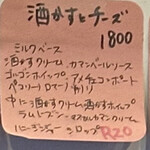 酒かすとチーズ
1800
ミルクベース
酒かすクリーム カマンベールソース
ゴルゴンホイップ アメチェコンポート
ペコリーノロマーノ削り
中に酒かすクリーム 酒かすホイップ
ラムレーズン マスカルポンクリーム
ハニージンジャーシロップ R20